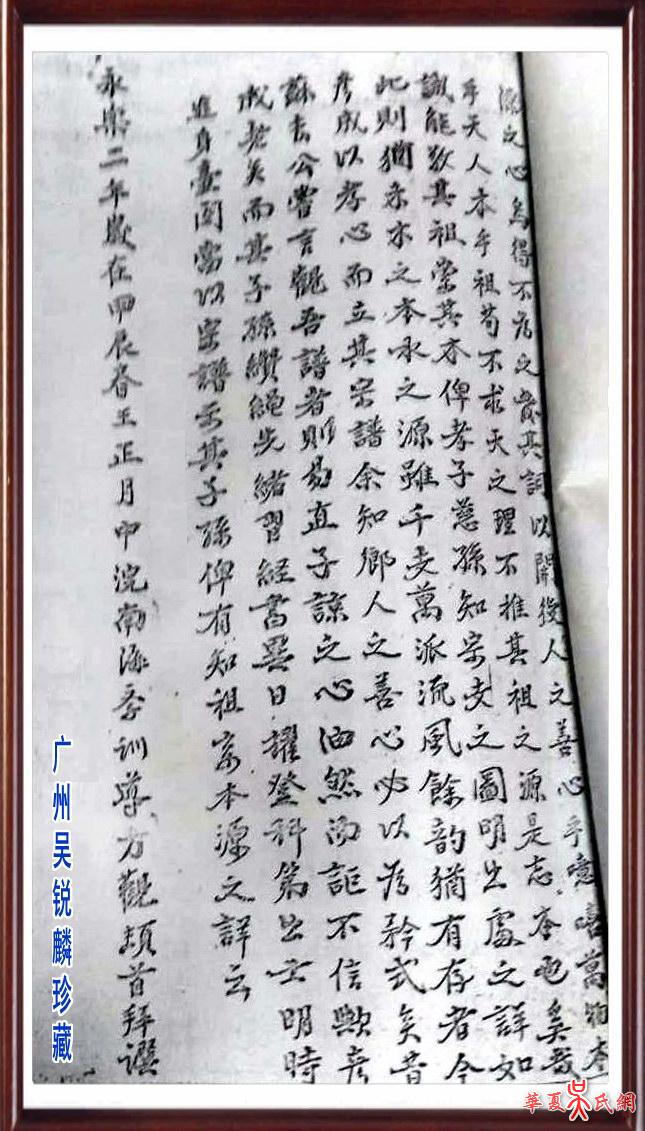 源之心烏得不為之賛其詞以開後人之善心乎噫嘻萬物本
乎天人本乎祖苟不求天之理不推其祖之源是忘本也奚哉
識能敬其祖崇其本俾孝子慈孫知宗支之圖明出處之詳如
此則猶木之本水之源雖千支萬派流風餘韵猶有存者今
彥成以孝心而立其宗譜余知鄉人之善心必以為矜式矣昔
蘇老公嘗言觀吾譜者則易直子諒之心油然而詎不信歟彥
成老矣而其子孫纘繩先緒習經書異日擢登科第出士明時
進身臺閣當以宗譜示其子孫俾有知祖宗本源之詳云
永樂二年歲在甲辰春王正月中浣南海斈訓導方觀頓首拜譔
广州吴锐麟珍藏
華夏吴氏網